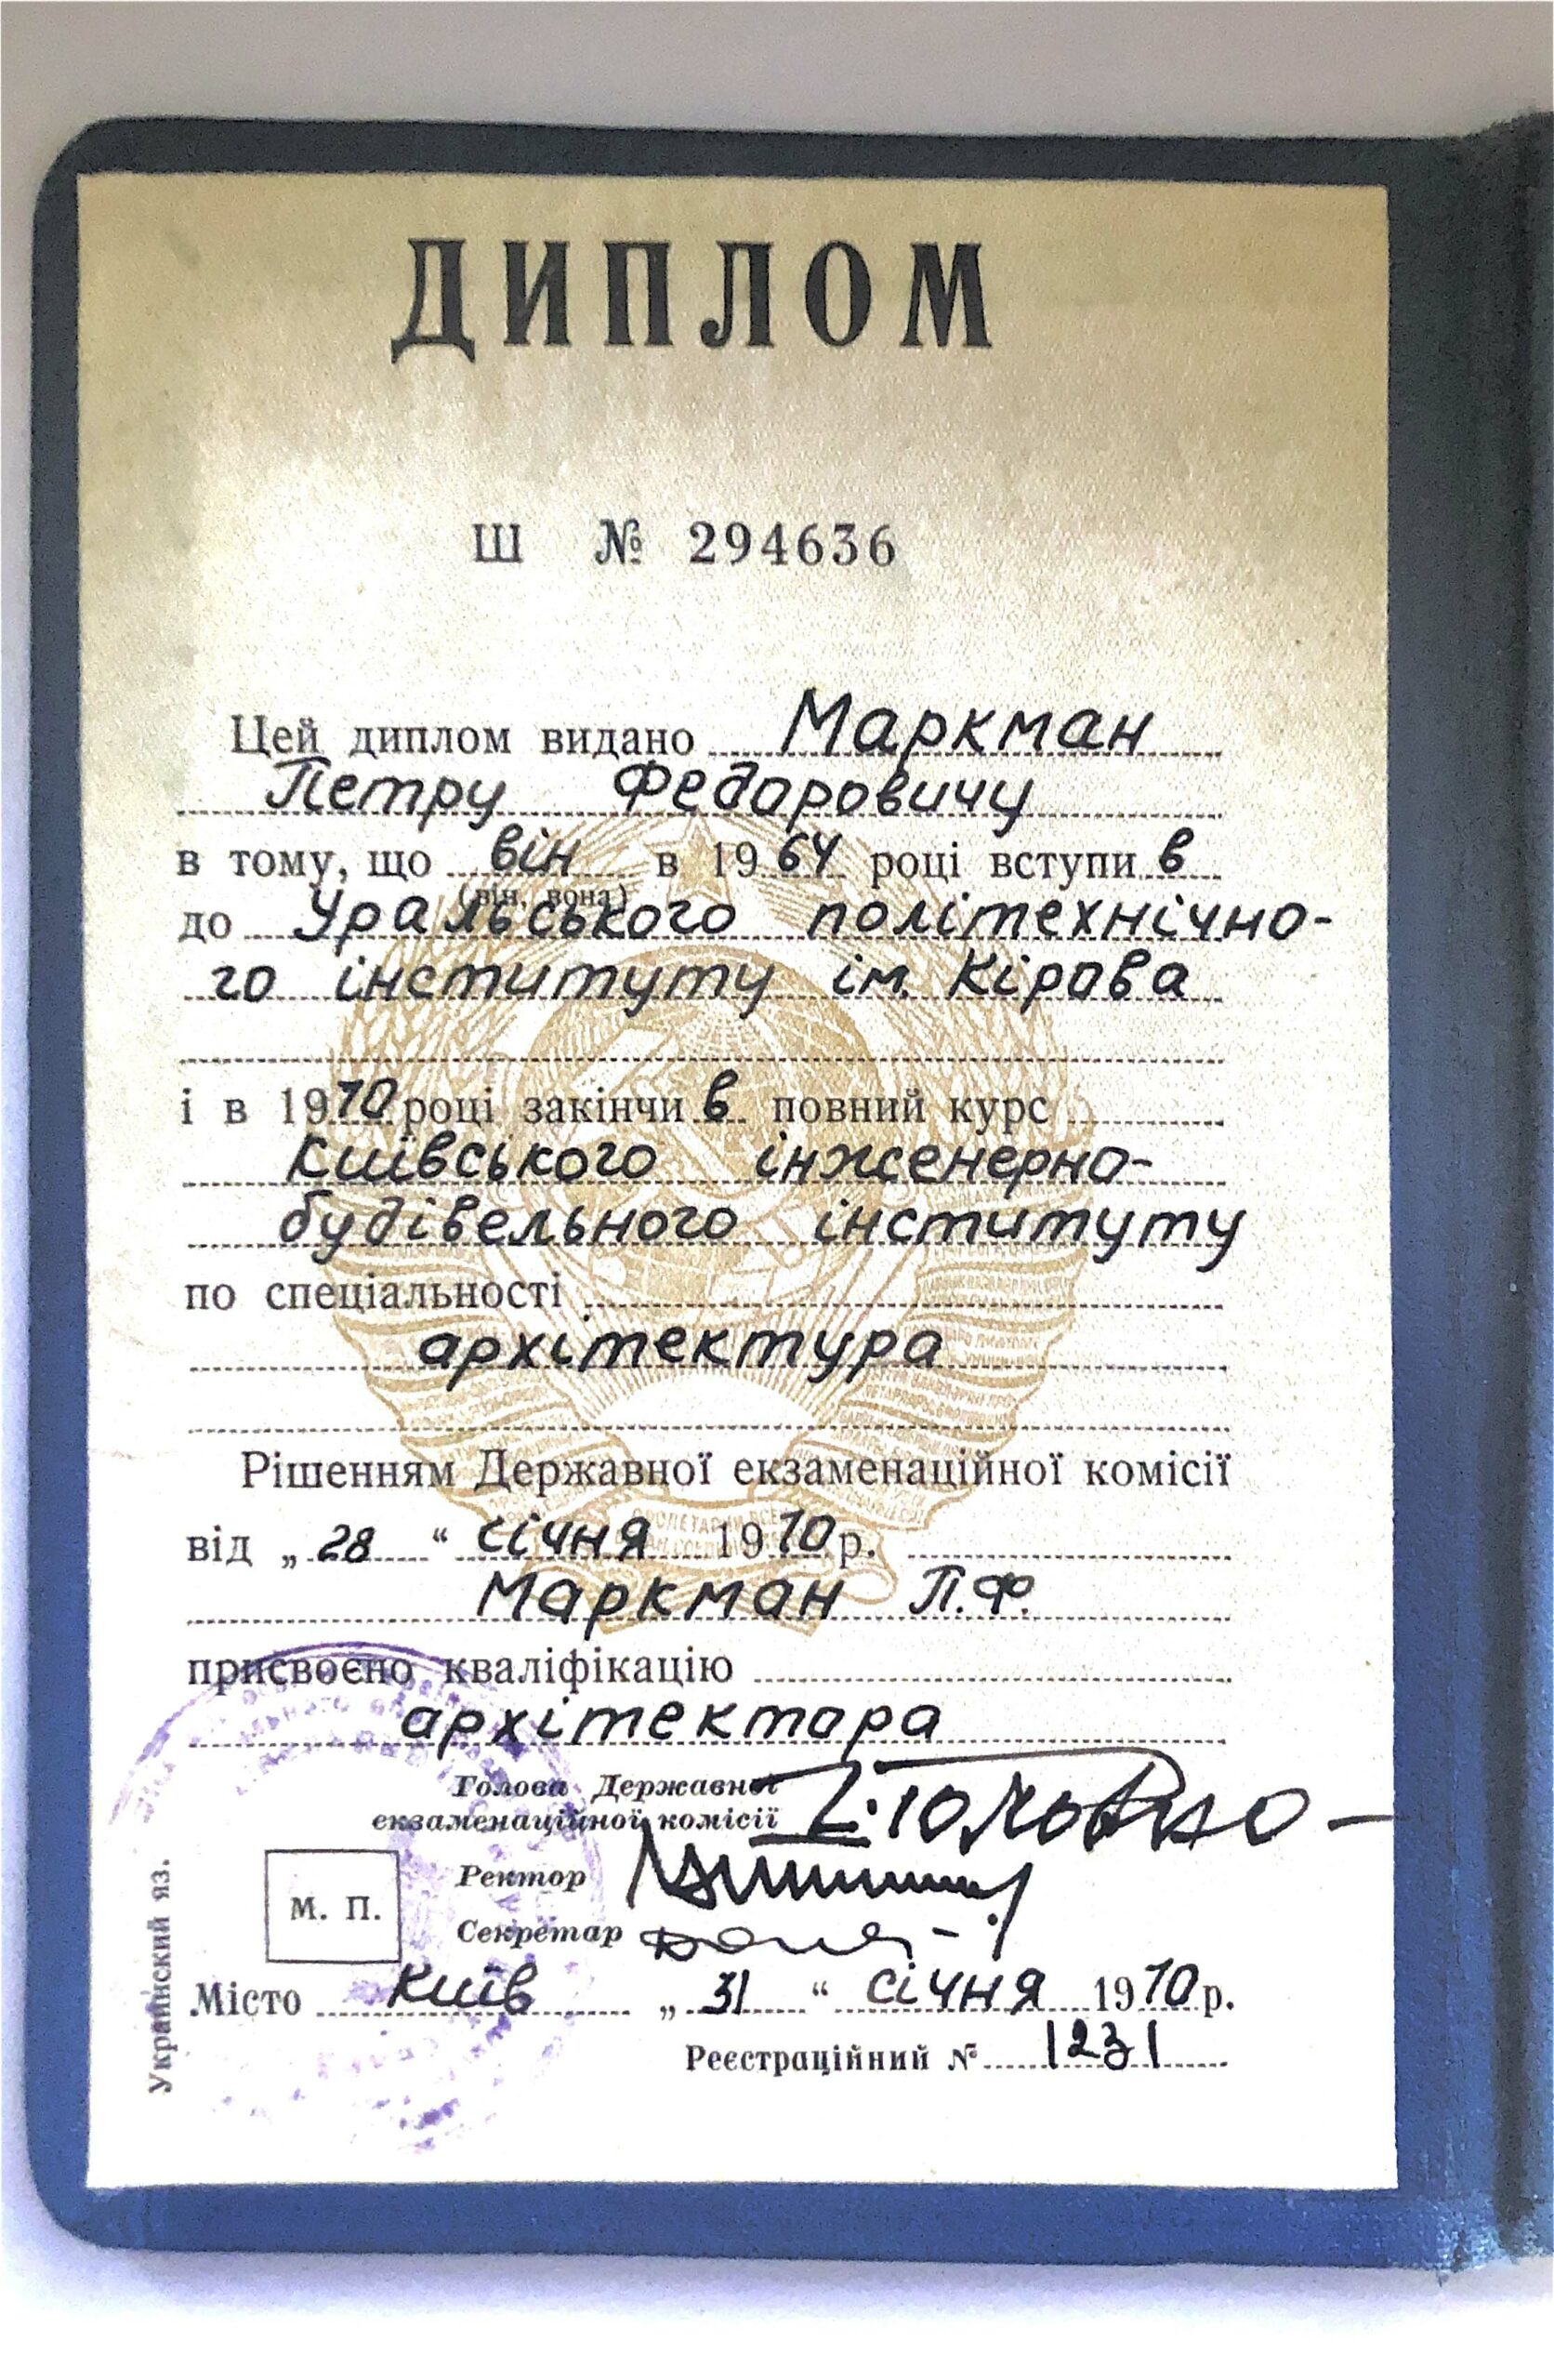 ДИПЛОМ
Ш № 294636
Цей диплом видано Маркман
Петру Федоровичу
в тому, що він в 1964 році вступив
(він, вона)
до Уральського політехнічно-
го інституту ім. Кірова
і в 1970 році закінчив повний курс
Київського інженерно-
будівельного інституту
по спеціальності
архітектура
Рішенням Державної екзаменаційної комісії
від „28“ січня 1970 р.
Маркман П.Ф.
присвоєно кваліфікацію
архітектора
Голова Державної
екзаменаційної комісії
Ректор
М. П.
Секретар
Місто Київ „31“ січня 1970 р.
Реєстраційний № 1231
Украинский яз.